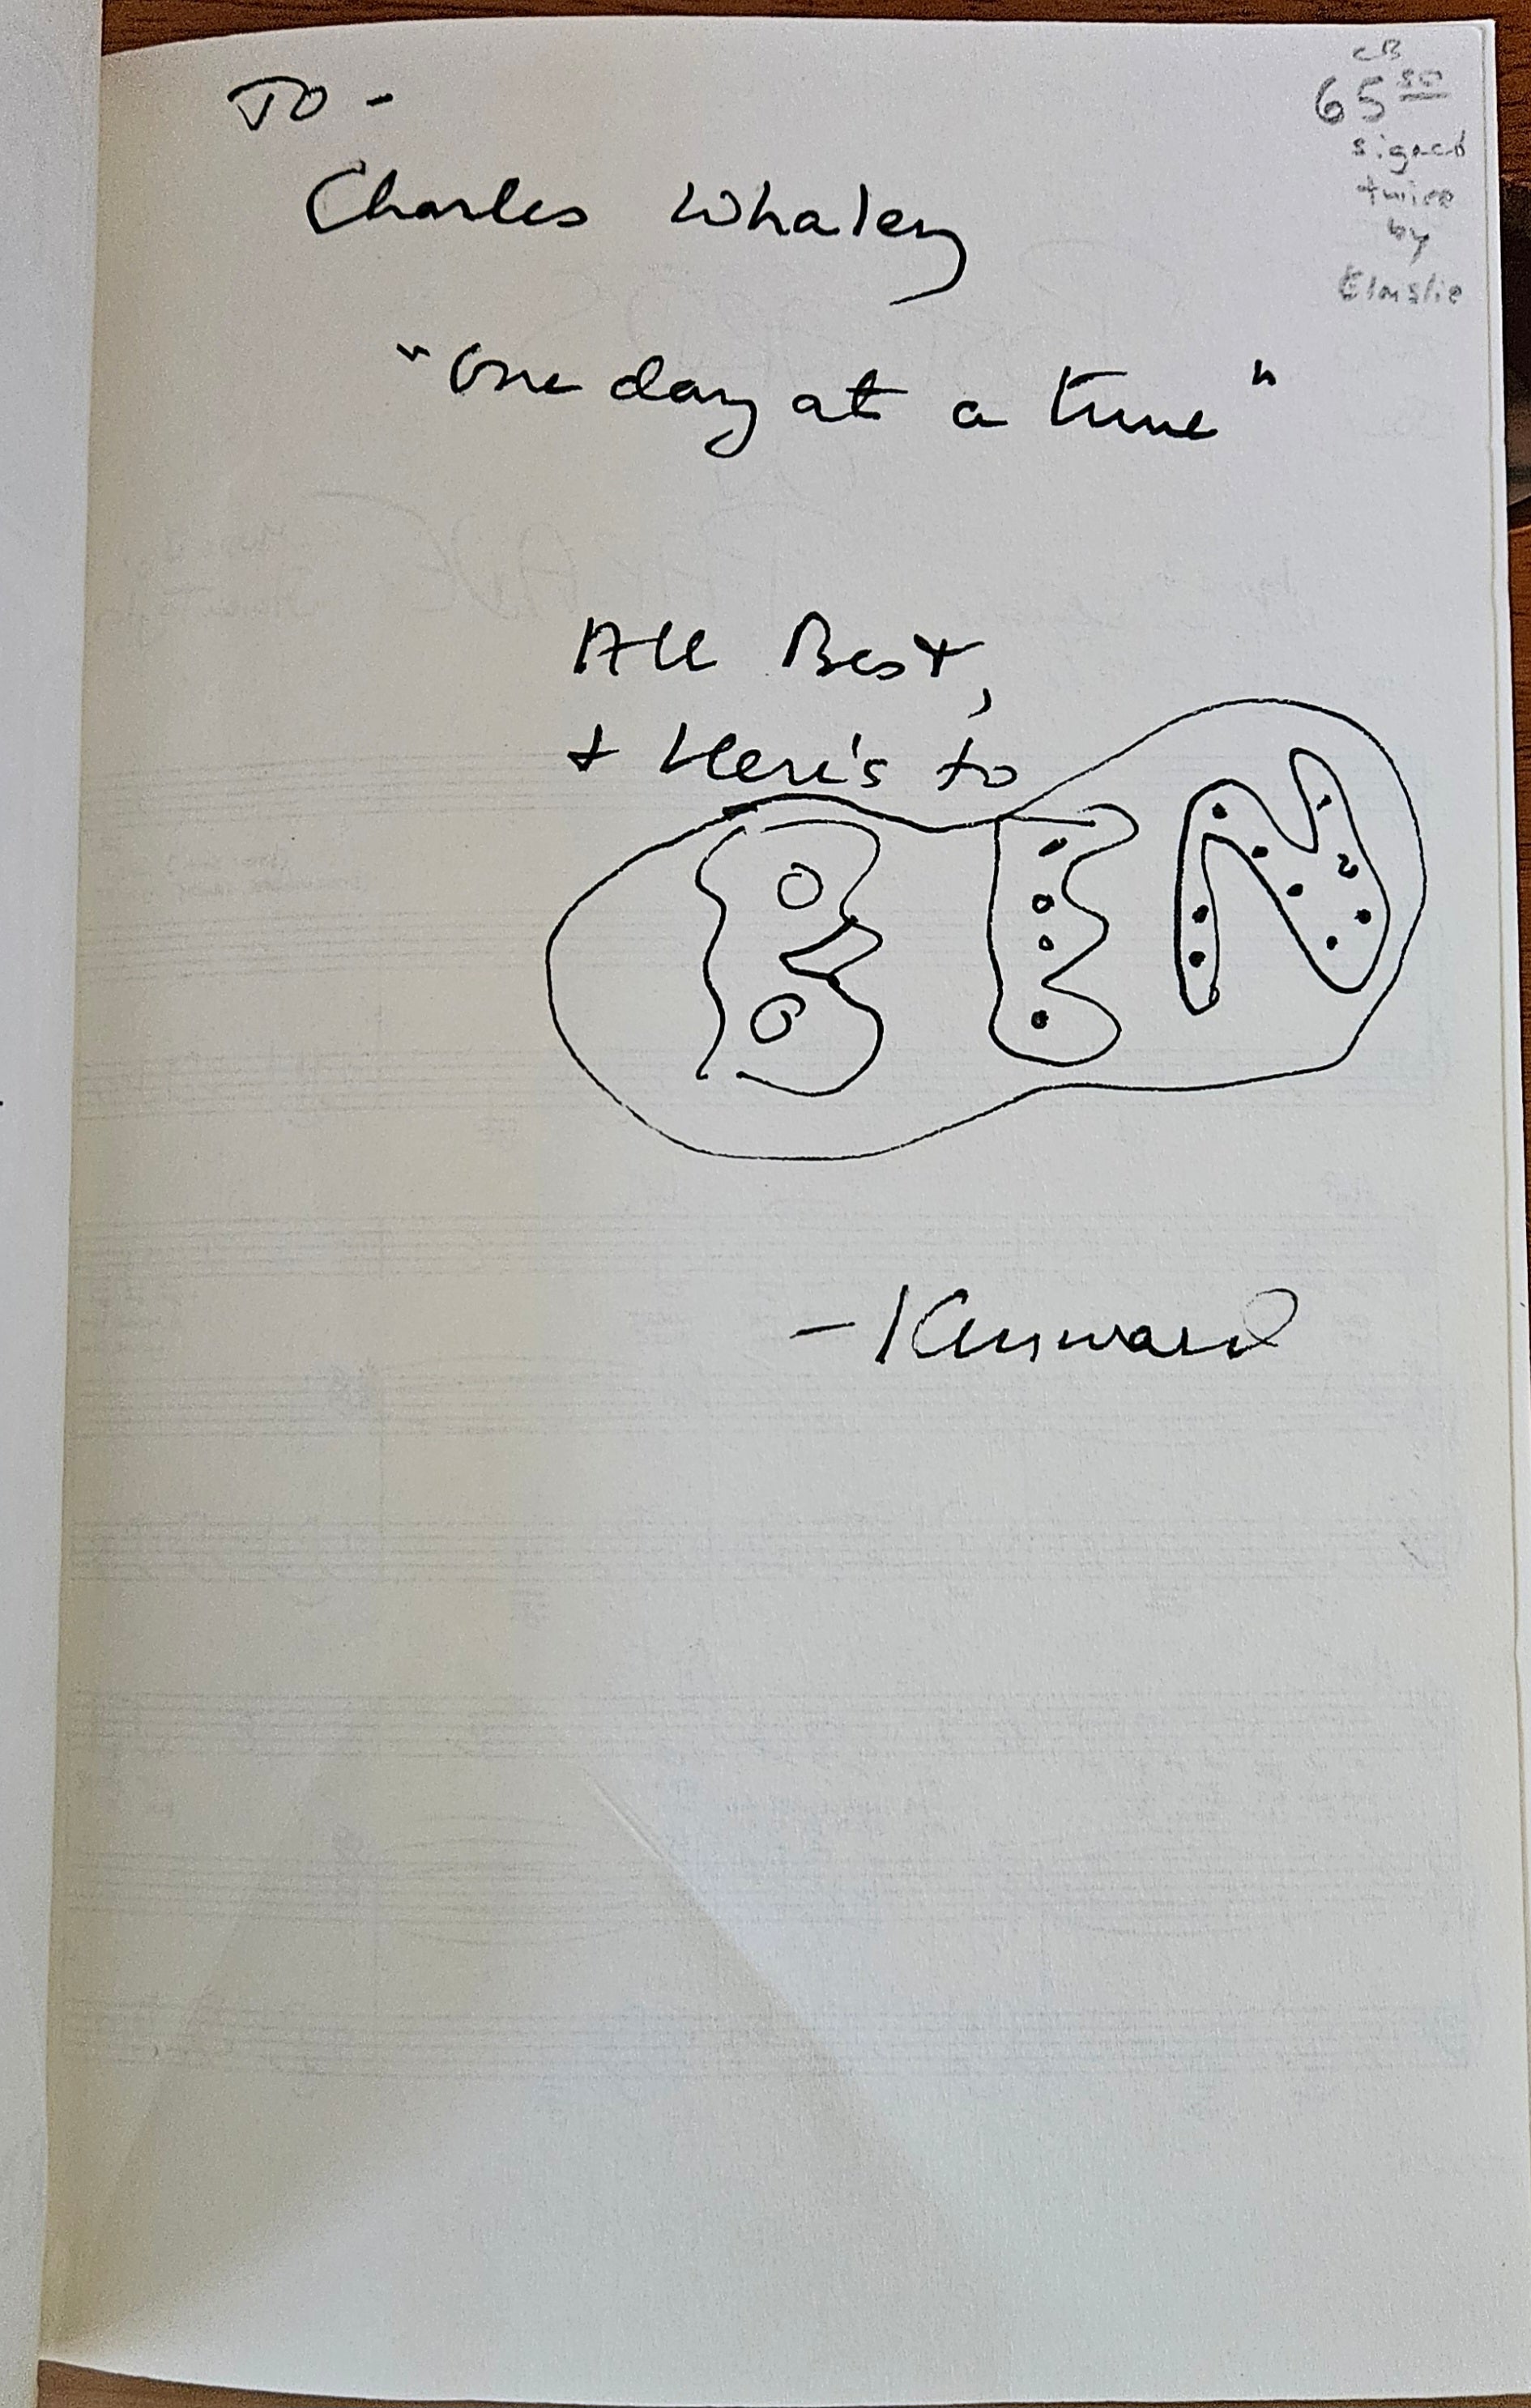 TO -
Charles Whaley
"One day at a time"
All Best,
+ Here's to
BEN
- Kenward
CB
65 50
signed
twice
by
Elmslie